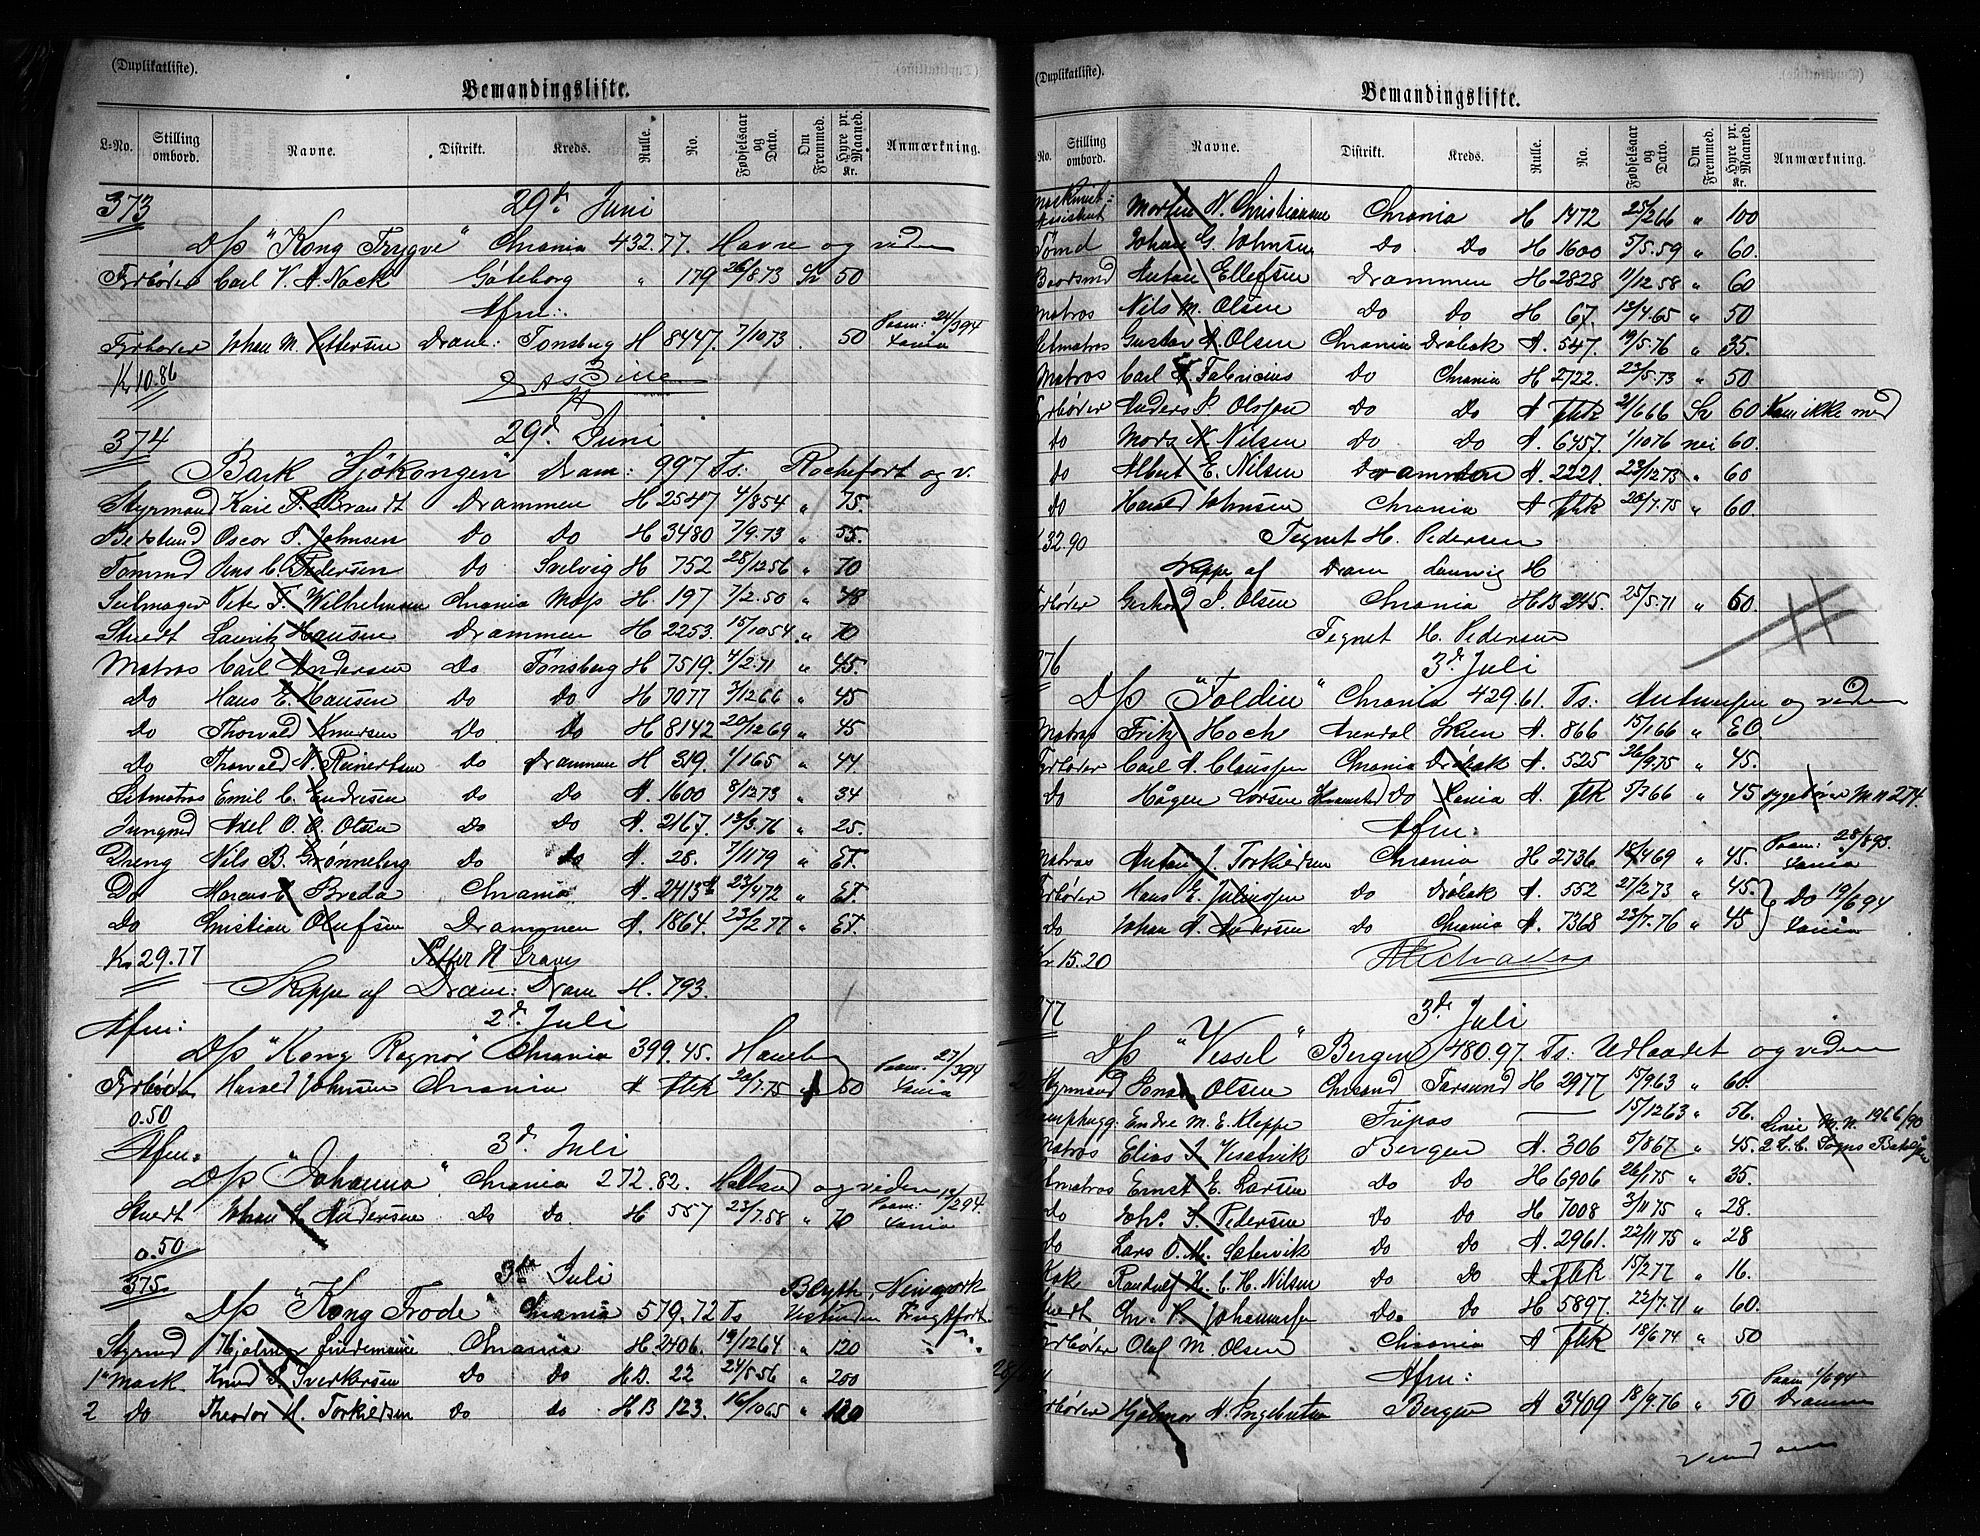 (Duplikatliste).
Bemandingsliste.
L-No. Stilling ombord. Navne. Distrikt. Kreds. Rulle. No. Fødselsaar og Dato. Om Fremmed. Hyre pr. Maaned. Kr. Anmærkning.
373 29de Juni
D/s "Kong Trygve" Chrania 432.77. Havre og viden
Fyrbøder Carl V. A. Nock Göteborg " 179 26/8.73 Sv 50
Afm:
Fyrbøder Johan M. Pettersen Dram: Tønsberg H 8447. 7/10.73 . 50 Paam: 24/3 94 Xania
Kr 10.86
374 29d Juni
Bark "Sjökongen" Dram: 997 Ts: Rochefort og v.
Styrmand Karl P. Brandt Drammen H 2547 4/8 54 " 75.
Bestmand Oscar F. Johnsen Do Do H 3480 7/9.73 " 55.
Tømmd Jens C. Pedersen Do Svelvig H 752 28/12 56 " 70
Seilmager Peter F. Wilhelmsen Chrania Moss H. 197 7/2.50 " 48
Stuert Lauritz Hansen Drammen H 2253. 15/10 54 " 70
Matros Carl Andersen Do Tønsberg H 7519. 4/2.71 " 45.
Do Hans E. Hansen Do Do H 7077 3/12 66 " 45
Do Thorvald Knudsen Do Do H 8142 20/12 69 " 45
Do Thorvald N. Reinertsen Do Drammen H 319. 1/1 65 " 44.
Letmatros Emil C. Endresen Do Do A. 1600 8/12 73 " 34
Jungmd Axel O. O. Olsen Do Do A. 2167. 12/3.76 " 25.
Dreng Nils B. Grønneberg do do A. 28. 7/11 79 " Et.
Do Marcus Breda Chrania A. 2413 23/4 72 " Et.
Do Christian Olufsen Drammen A. 1864. 23/2 77 " Et.
Kr. 29.77
Skippe af Dram: Dram H. 793.
Afm: 2d. Juli
D/s "Kong Ragnar" Chrania 399.45.
Fyrbøder Harald Johnsen Chrania A flk 20/7.75 60 Paam: 27/3 94 Xania
0.50
Afm: 3d Juli
D/s "Johanna" Chrania 272.82. Holland og viden 12/2 94. Paam:
Stuert Johan Andersen Do do. H 557 23/7.58 " 70 Xania
0.50
375. 3de Juli
D/s "Kong Frode" Chrania 579.72 Ts Blyth, Newyork
Vestinden Frugtfart
Styrmd Hjalmar Lindemann Chrania H. 2406. 19/12 64 " 120 " "
1' Mask. Knud Sverkersen Do Do H.B. 22 24/8.56 " 200
2 do Theodor H. Torkildsen do do H B 123. 16/10 65 " 120
(Duplikatliste).
Bemandingsliste.
No. Stilling ombord. Navne. Distrikt. Kreds. Rulle. No. Fødselsaar og Dato. Om Fremmed. Hyre pr. Maaned. Kr. Anmærkning.
Assistent Morten N. Christiansen Chrania H 1472 25/2 66 " 100
Tømd Johan G. Johnsen Do Do H 1600 5/5.59 " 60.
Baadsmd Anton Ellefsen Drammen H 2828 11/12 58 " 60
Matros Nils M. Olsen Do Do H 67. 12/4.65 " 50
Letmatros Gustav A. Olsen Chrania Drøbak A. 547. 19/5.76 " 35.
Matros Carl Fabricius Do Chrania H 2722. 23/5.73 " 50
Fyrbøder Anders P. Olsson Do Do A flk 21/6 66 Sv 60 Kom ikke med
Do Mors N. Nilsen Do Do A. 6457. 1/10 76 nei 60.
Do Albert E. Nilsen Drammen A. 2221. 23/12 75 " 60
Do Harald Johnsen Chrania A flk 20/7.75 " 60.
132.90 Tegnet H. Pedersen
Skippe af Dram Laurvig H
Fyrbøder Gerhard S. Olsen Chrania H.B 245. 25/5.71 " 60.
Tegnet H. Pedersen
376 3d. Juli
D/s "Foldin" Chrania 429.61. Ts: Antwerpen og viden
Matros Fritz Hoch Arendal Skien A. 866 15/1 66 " 60
Fyrbøder Carl A. Claussen Chrania Drøbak A. 525 26/9.75 " 45.
Do Hågen Larsen Do Xania A. flk 5/3 66 " 45 M.N 274
Afm:
Matros Anton J. Torkildsen Chrania H 2736 18/4 69 " 45. Paam: 28/8 93. Xania
Fyrbøder Hans E. Juliussen do Drøbak A. 552 27/2.73 " 45. Do 19/6 94
Do Johan A. Andersen do Chrania A. 7368 23/7.76 " 45 Xania
Kr 15.20
377 3de Juli
D/s "Vessel" Bergen 480.97. Ts: Udlandet og viden
Styrmand Olsen Chrsand Farsund H 2977 15/9 63 " 60.
Endre M. E. Kleppe Fripas 15/12 63 " 56. 1966/90
Matros Elias Vestvik Bergen A. 306 5/8 67 " 45.
Letmatros Ernst E. Larsen Do Do H 6906 26/1 75 " 35.
Do Joh. S. Pedersen Do Do H 7008 3/11 75 " 28.
Do Lars O. M. Sætervik Do Do A. 2961. 22/11 75 " 28
Kok Randulf H. C. H. Nilsen Do Do A flk 15/2 77 " 16.
Stuert Chr. P. Johannessen Do. Do H 5897. 22/7.71 " 60.
Fyrbøder Olaf M. Olsen Chrania A flk 18/6 74 " 50
Afm:
Fyrbøder Hjalmar A. Engebretsen Bergen A 3409 18/9.76 " 50 Paam 1/6 94 Drammen
Vend om